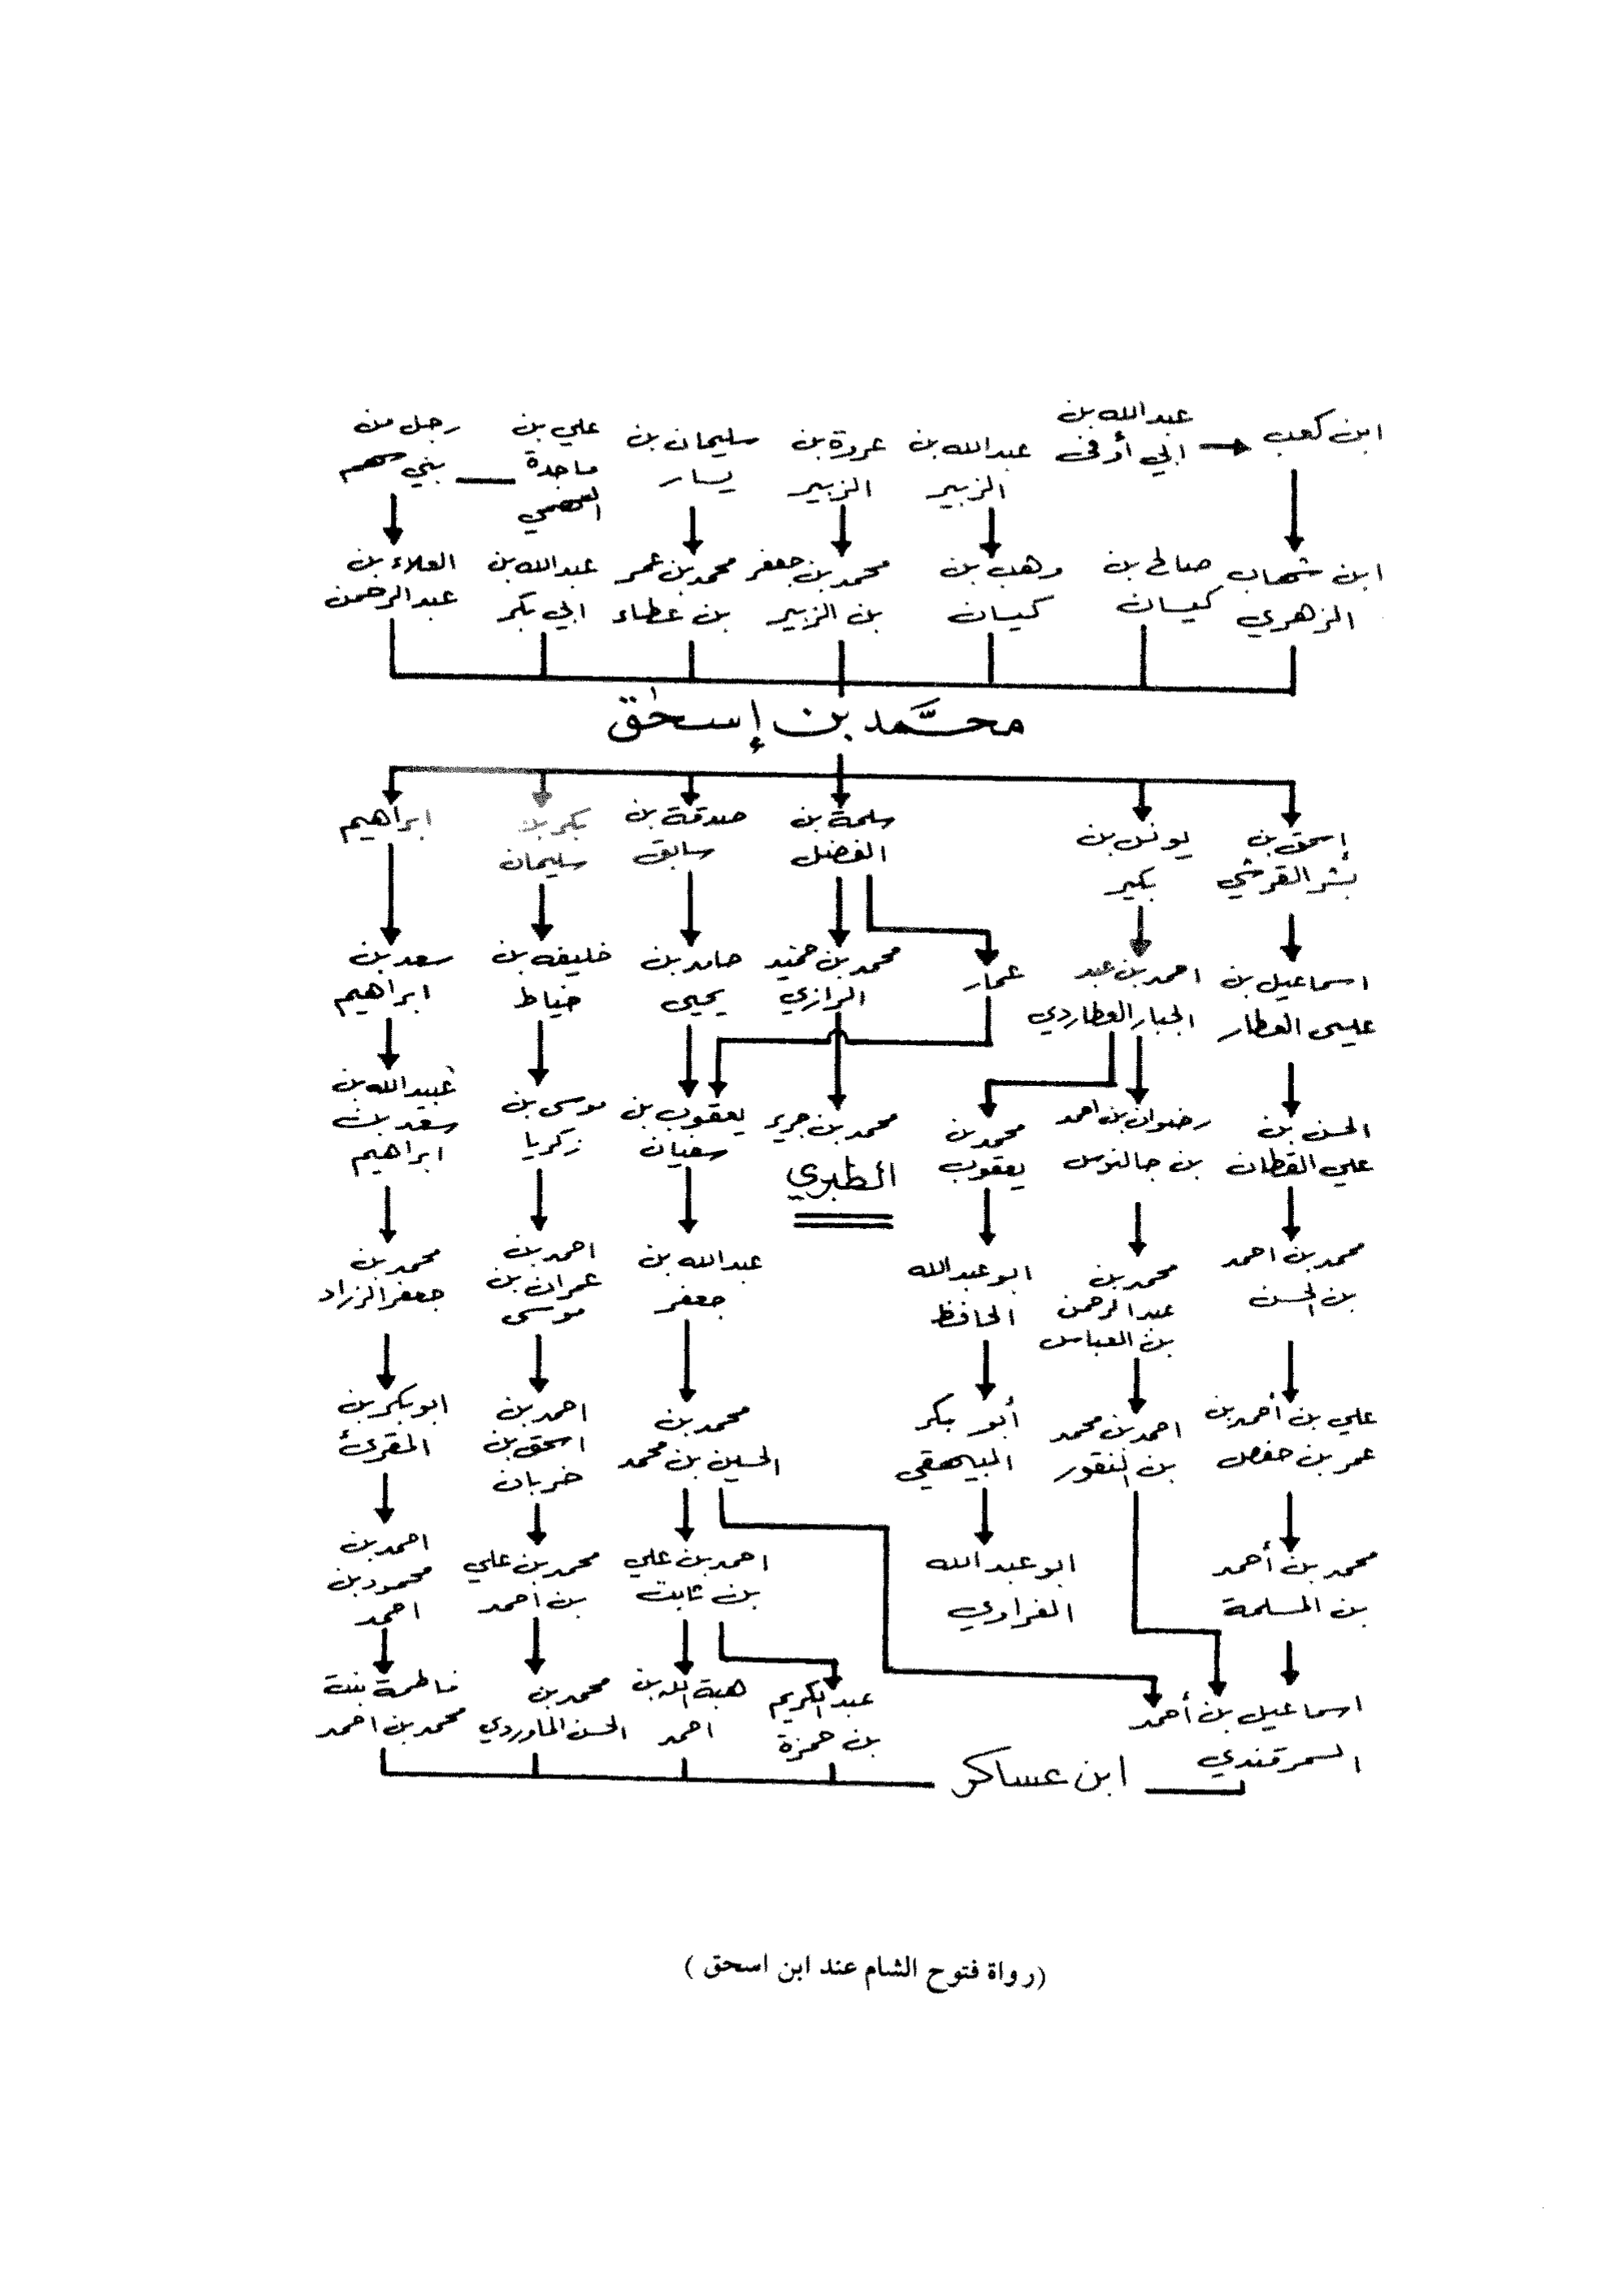 ابن كعب
عبدالله بن
ابي أوفى
عبدالله بن
الزبير
عروة بن
الزبير
سليمان بن
يسار
علي بن
ماجدة
رجل من
بني سهم
ابن شهاب
الزهري
صالح بن
كيسان
وهب بن
كيسان
محمد بن جعفر
بن الزبير
محمد بن عمر
بن عطاء
عبدالله بن
ابي بكر
العلاء بن
عبدالرحمن
محمَّد بن إسحٰق
إسحق بن
بشر القرشي
يونس بن
بكير
سلمة بن
الفضل
صدقة بن
سابق
بكر بن
سليمان
ابراهيم
اسماعيل بن
عيسى العطار
احمد بن عبد
الجبار العطاردي
عمار
محمد بن حميد
الرازي
حامد بن
يحيى
خليفه بن
خياط
سعد بن
ابراهيم
الحسن بن
علي القطان
رضوان بن احمد
بن جالنوس
محمد بن
يعقوب
محمد بن جرير
الطبري
يعقوب بن
سفيان
موسى بن
زكريا
عبيدالله بن
سعد بن
ابراهيم
محمد بن احمد
بن الحسن
محمد بن
عبدالرحمن
بن العباس
ابو عبدالله
الحافظ
عبدالله بن
جعفر
احمد بن
عمران بن
موسى
محمد بن
جعفر الزراد
علي بن أحمد بن
عمر بن حفص
احمد بن محمد
بن النقور
أبو بكر
البيهقي
محمد بن
الحسين بن محمد
احمد بن
اسحق بن
خربان
ابو بكر بن
المقرئ
محمد بن أحمد
بن المسلمة
ابو عبدالله
الفراوي
احمد بن علي
بن ثابت
محمد بن علي
بن احمد
احمد بن
محمود بن
احمد
اسماعيل بن أحمد
السمرقندي
عبدالكريم
بن حمزة
هبة الله بن
احمد
محمد بن
الحسن الماوردي
فاطمة بنت
محمد بن احمد
ابن عساكر
(رواة فتوح الشام عند ابن اسحق )